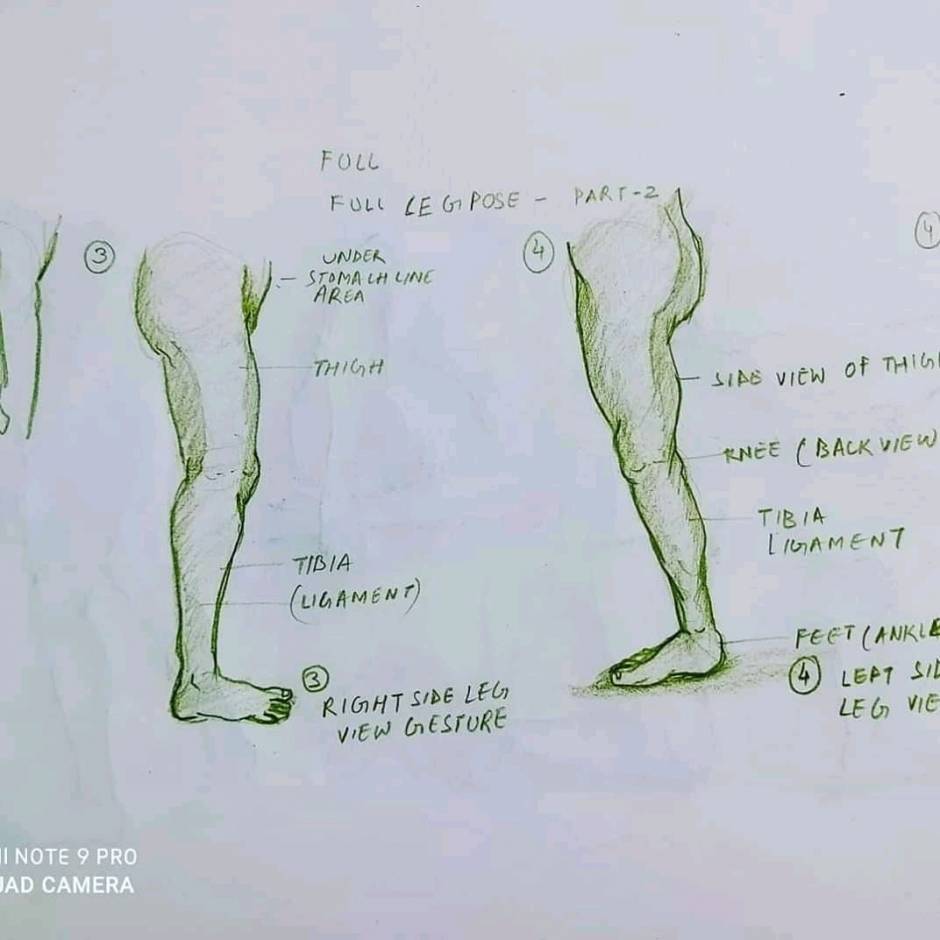 FULL
FULL LEG POSE - PART-2
3
UNDER
STOMACH LINE
AREA
THIGH
TIBIA
(LIGAMENT)
3
RIGHT SIDE LEG
VIEW GESTURE
4
SIDE VIEW OF THIGH
KNEE (BACK VIEW
TIBIA
LIGAMENT
FEET (ANKLE
4 LEFT SID
LEG VIE
4
I NOTE 9 PRO
UAD CAMERA